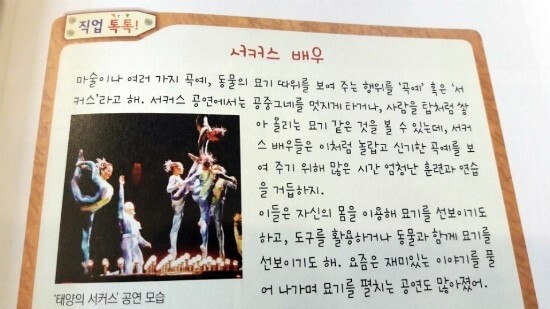 직업 톡톡!
서커스 배우
마술이나 여러 가지 곡예, 동물의 묘기 따위를 보여 주는 행위를 '곡예' 혹은 '서
커스'라고 해. 서커스 공연에서는 공중그네를 멋지게 타거나, 사람을 탑처럼 쌓
아 올리는 묘기 같은 것을 볼 수 있는데, 서커
스 배우들은 이처럼 놀랍고 신기한 곡예를 보
여 주기 위해 많은 시간 엄청난 훈련과 연습
을 거듭하지.
이들은 자신의 몸을 이용해 묘기를 선보이기도
하고, 도구를 활용하거나 동물과 함께 묘기를
선보이기도 해. 요즘은 재미있는 이야기를 풀
어 나가며 묘기를 펼치는 공연도 많아졌어.
'태양의 서커스' 공연 모습